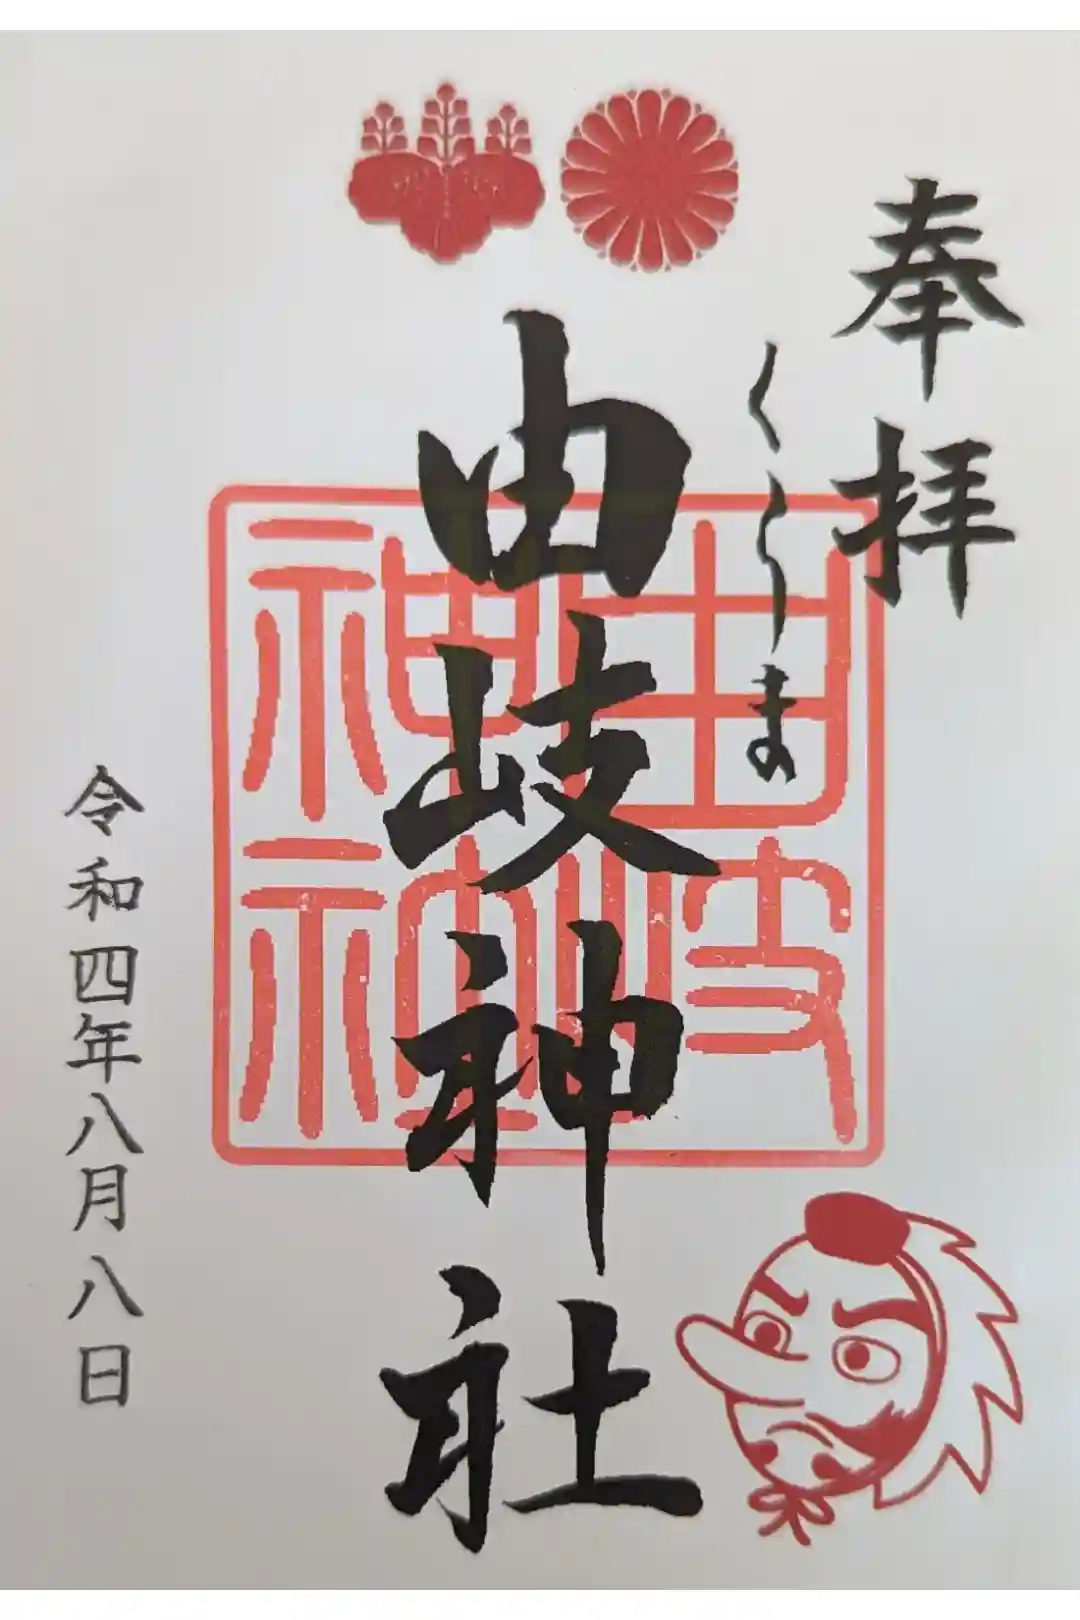 奉拝
くらま
由岐神社
由岐
神社
令和四年八月八日